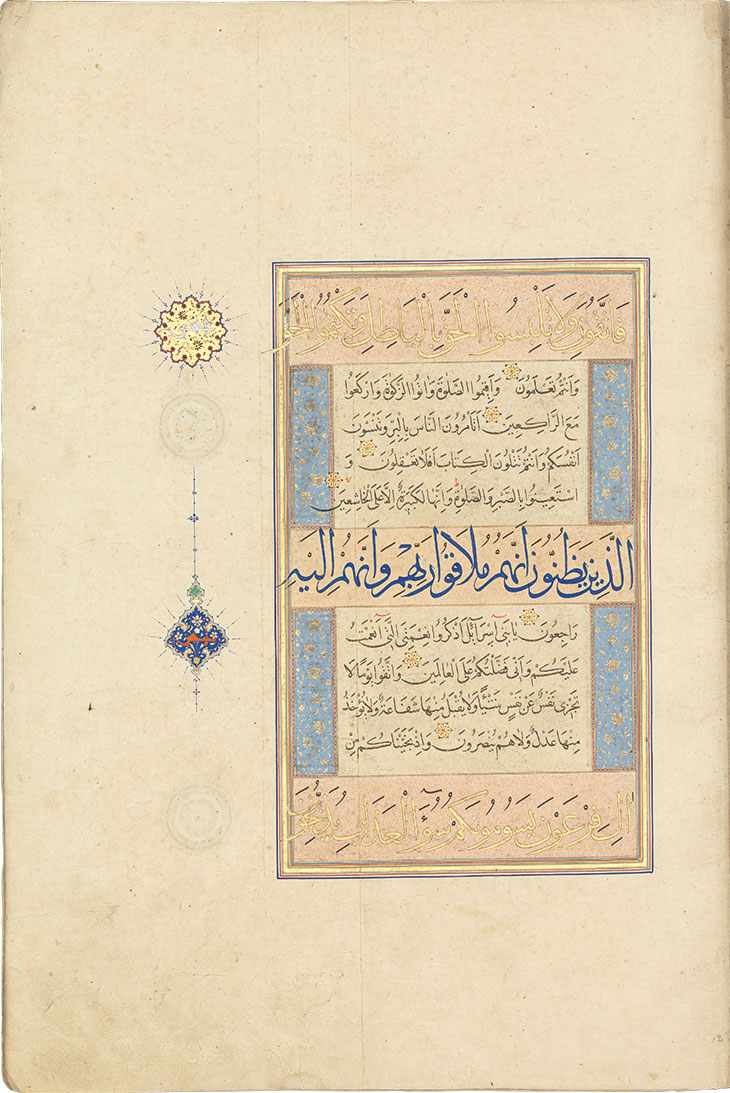 فَاتَّقُونِ وَلَا تَلْبِسُوا الْحَقَّ بِالْبَاطِلِ وَتَكْتُمُوا الْحَقَّ
وَاَنْتُمْ تَعْلَمُونَ وَاَقِيمُوا الصَّلٰوةَ وَاٰتُوا الزَّكٰوةَ وَارْكَعُوا
مَعَ الرَّاكِعِينَ اَتَأْمُرُونَ النَّاسَ بِالْبِرِّ وَتَنْسَوْنَ
اَنْفُسَكُمْ وَاَنْتُمْ تَتْلُونَ الْكِتَابَ اَفَلَا تَعْقِلُونَ وَ
اسْتَعِينُوا بِالصَّبْرِ وَالصَّلٰوةِ وَاِنَّهَا لَكَبِيرَةٌ اِلَّا عَلَى الْخَاشِعِينَ
الَّذِينَ يَظُنُّونَ اَنَّهُمْ مُلَاقُوا رَبِّهِمْ وَاَنَّهُمْ اِلَيْهِ
رَاجِعُونَ يَا بَنِى اِسْرَآئِلَ اذْكُرُوا نِعْمَتِىَ الَّتِى اَنْعَمْتُ
عَلَيْكُمْ وَاَنِّى فَضَّلْتُكُمْ عَلَى الْعَالَمِينَ وَاتَّقُوا يَوْمًا لَا
تَجْزِى نَفْسٌ عَنْ نَفْسٍ شَيْئًا وَلَا يُقْبَلُ مِنْهَا شَفَاعَةٌ وَلَا يُؤْخَذُ
مِنْهَا عَدْلٌ وَلَا هُمْ يُنْصَرُونَ وَاِذْ نَجَّيْنَاكُمْ مِنْ
اٰلِ فِرْعَوْنَ يَسُومُونَكُمْ سُوٓءَ الْعَذَابِ يُذَبِّحُونَ
12